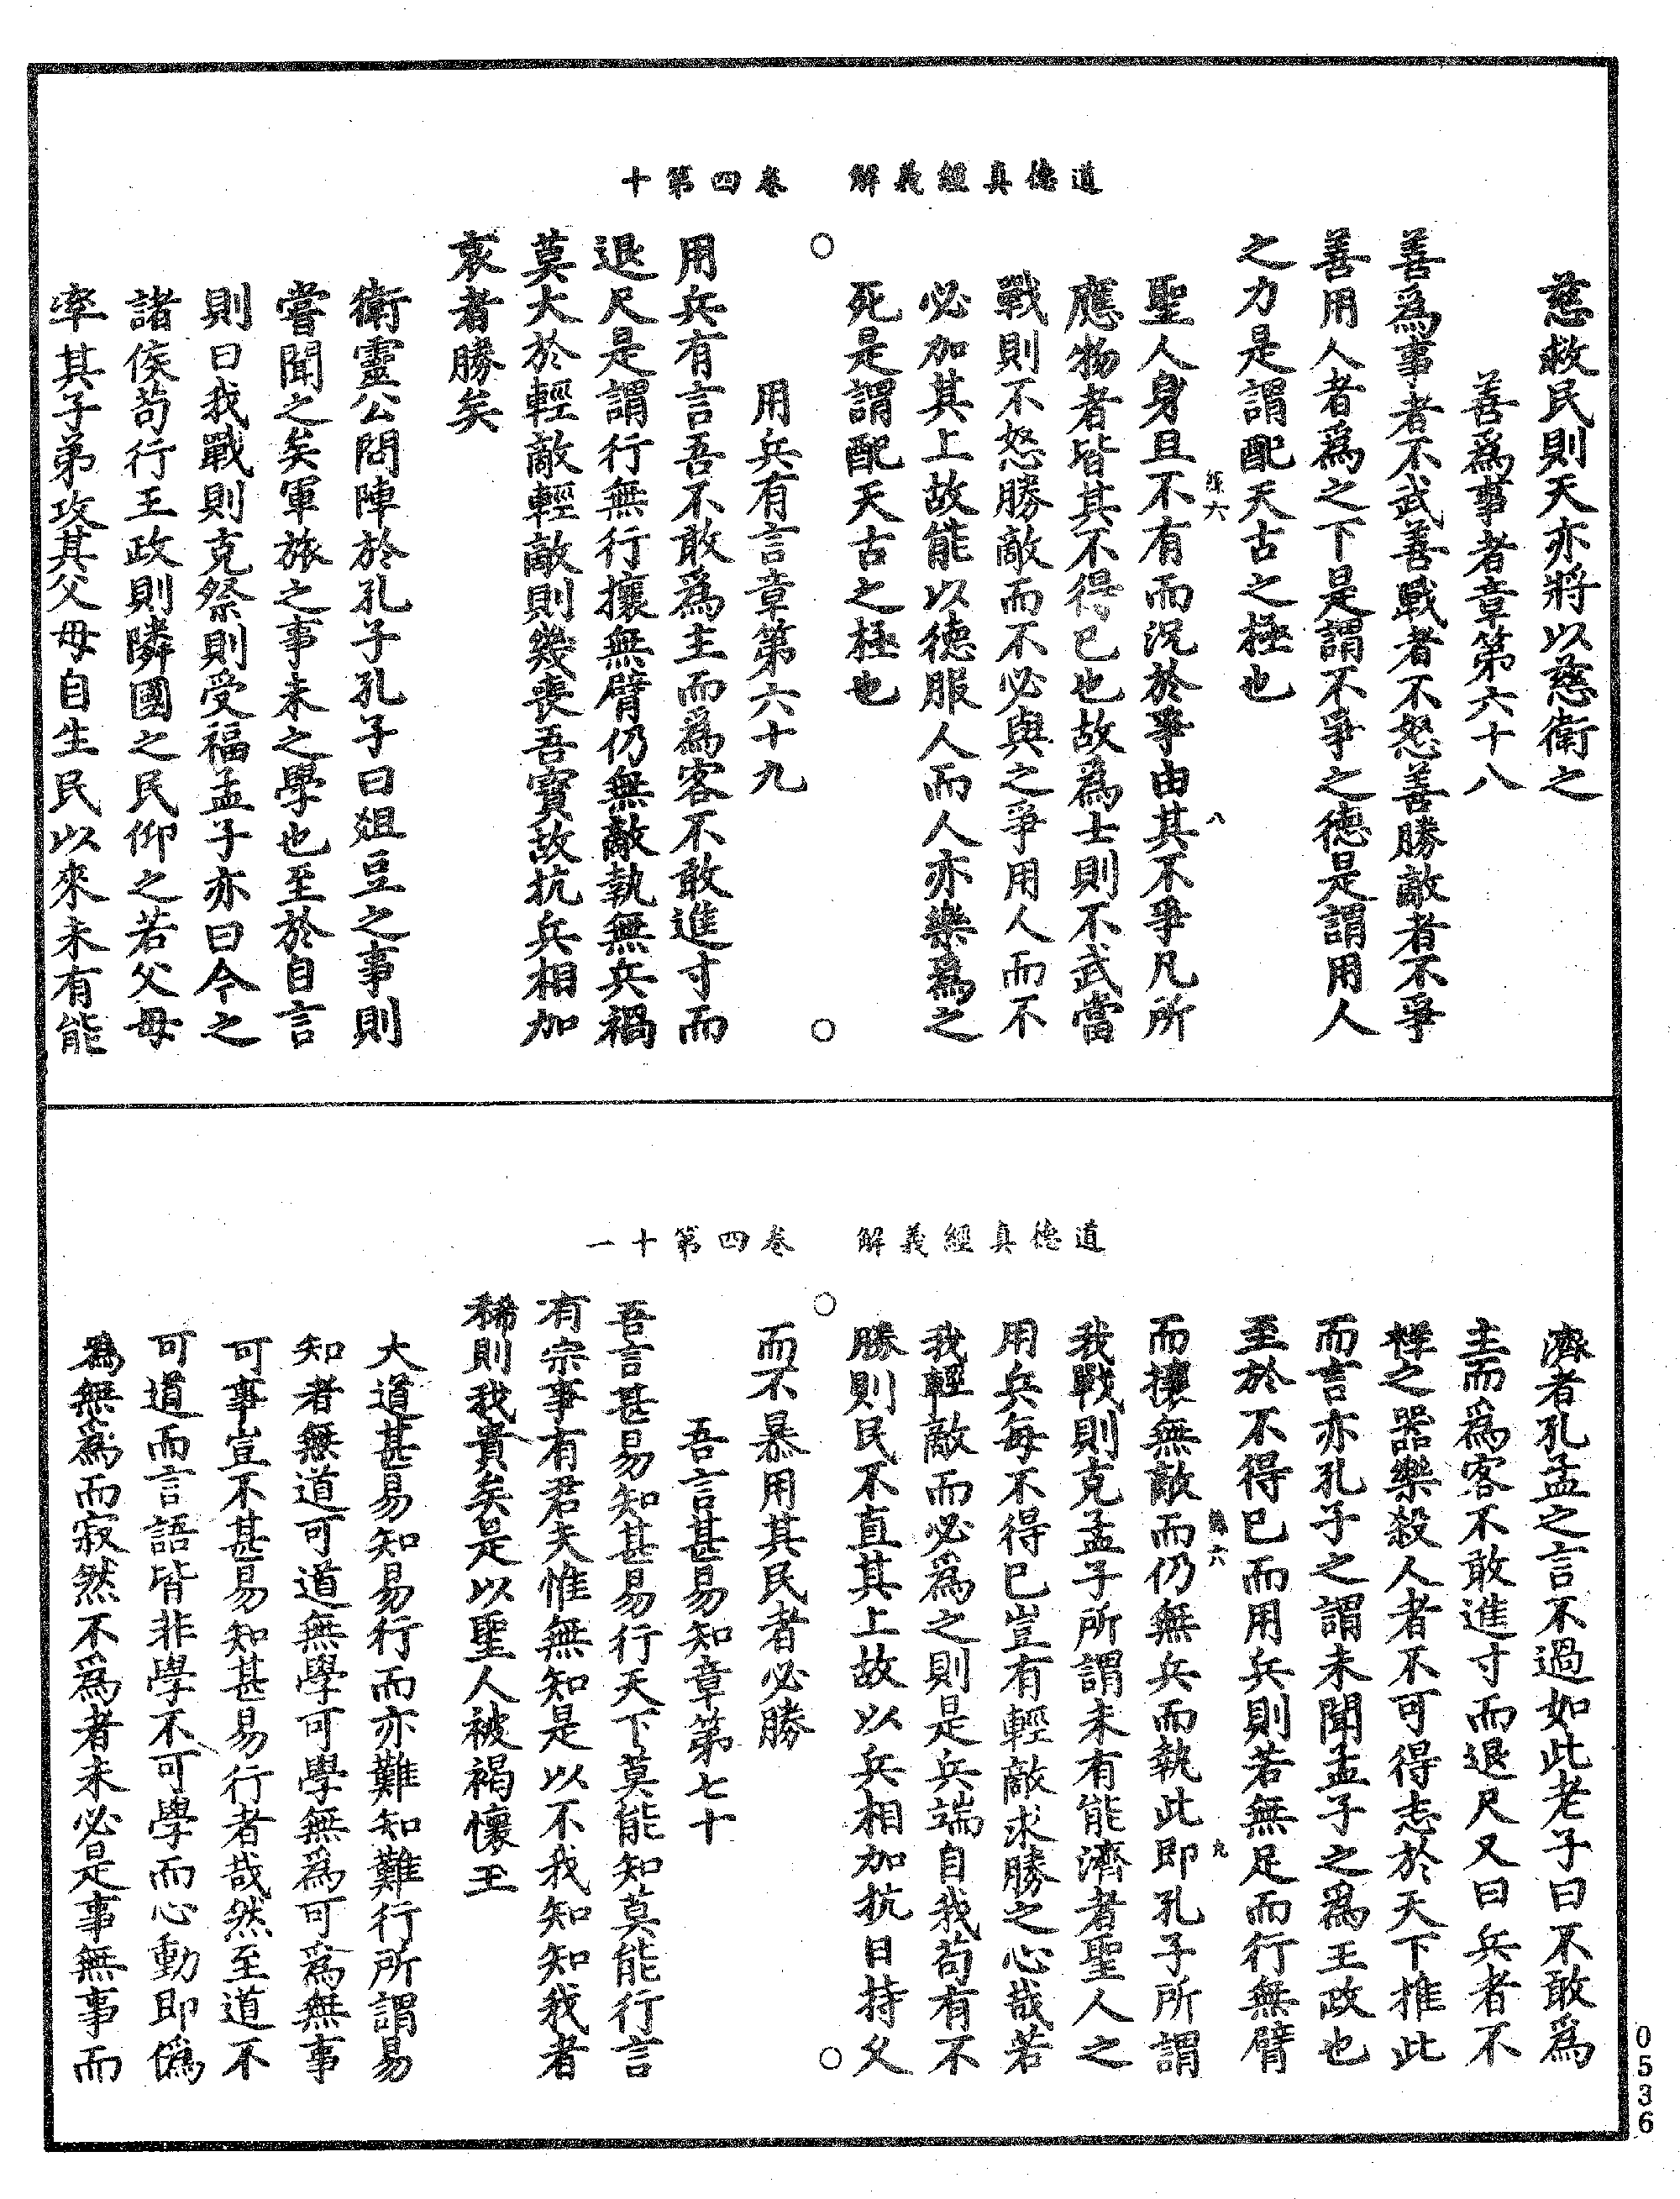 道德真經義解　卷四第十
慈救民則天亦將以慈衛之
善爲事者章第六十八
善爲事者不武善戰者不怒善勝敵者不爭
善用人者爲之下是謂不爭之德是謂用人
之力是謂配天古之極也
聖人身且不有而況於爭由其不爭凡所
應物者皆其不得已也故爲士則不武當
戰則不怒勝敵而不必與之爭用人而不
必加其上故能以德服人而人亦樂爲之
死是謂配天古之極也
用兵有言章第六十九
用兵有言吾不敢爲主而爲客不敢進寸而
退尺是謂行無行攘無臂仍無敵執無兵禍
莫大於輕敵輕敵則幾喪吾寶故抗兵相加
哀者勝矣
衛靈公問陣於孔子孔子曰俎豆之事則
嘗聞之矣軍旅之事未之學也至於自言
則曰我戰則克祭則受福孟子亦曰今之
諸侯苟行王政則隣國之民仰之若父母
率其子弟攻其父母自生民以來未有能
道德真經義解　卷四第十一
濟者孔孟之言不過如此老子曰不敢爲
主而爲客不敢進寸而退尺又曰兵者不
祥之器樂殺人者不可得志於天下推此
而言亦孔子之謂未聞孟子之爲王政也
至於不得已而用兵則若無足而行無臂
而攘無敵而仍無兵而執此即孔子所謂
我戰則克孟子所謂未有能濟者聖人之
用兵每不得已豈有輕敵求勝之心哉若
我輕敵而必爲之則是兵端自我苟有不
勝則民不直其上故以兵相加抗日持久
而不暴用其民者必勝
吾言甚易知章第七十
吾言甚易知甚易行天下莫能知莫能行言
有宗事有君夫惟無知是以不我知知我者
稀則我貴矣是以聖人被褐懷玉
大道甚易知易行而亦難知難行所謂易
知者無道可道無學可學無爲可爲無事
可事豈不甚易知甚易行者哉然至道不
可道而言語皆非學不可學而心動即僞
爲無爲而寂然不爲者未必是事無事而
0536